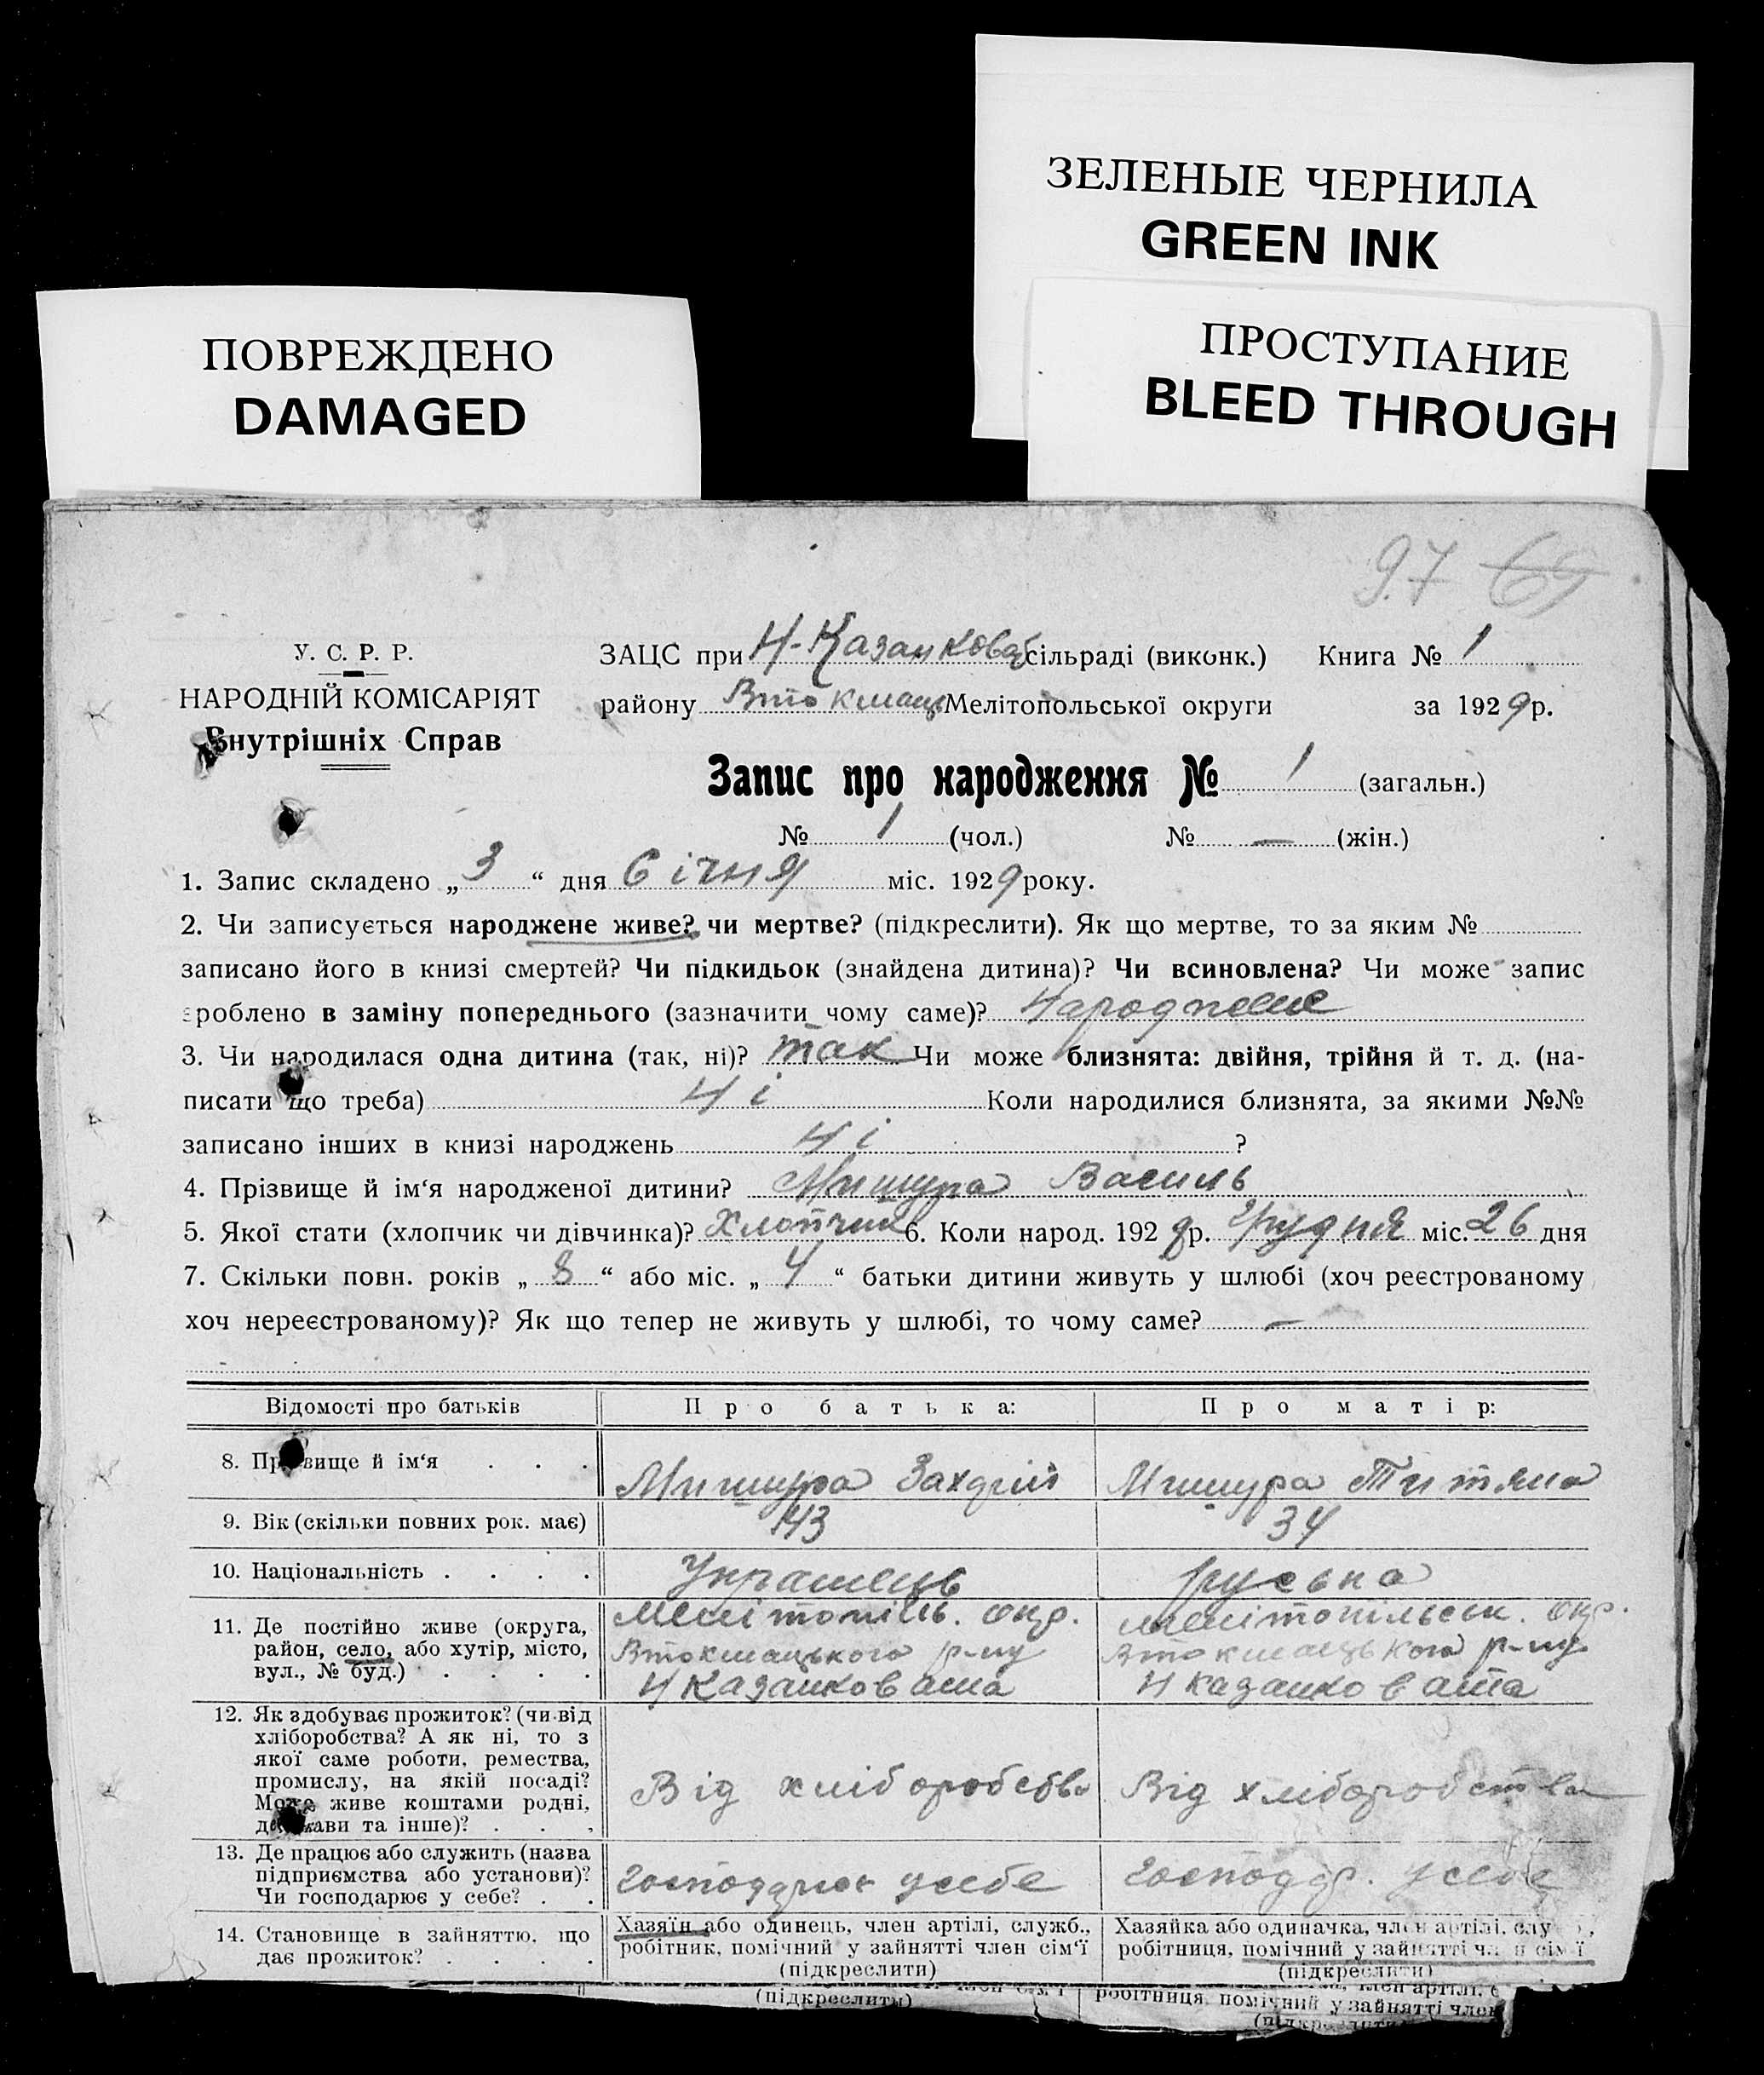 ЗЕЛЕНЫЕ ЧЕРНИЛА
GREEN INK
ПРОСТУПАНИЕ
BLEED THROUGH
ПОВРЕЖДЕНО
DAMAGED
97 69
У. С. Р. Р.
НАРОДНІЙ КОМІСАРІЯТ
Внутрішніх Справ
ЗАЦС при Н-Казанковац сільраді (виконк.) Книга № 1
району Втокмац Мелітопольської округи за 1929 р.
Запис про народження № 1 (загальн.)
№ 1 (чол.) № — (жін.)
1. Запис складено „ 3 “ дня Січня міс. 1929 року.
2. Чи записується народжене живе? чи мертве? (підкреслити). Як що мертве, то за яким №
записано його в книзі смертей? Чи підкидьок (знайдена дитина)? Чи всиновлена? Чи може запис
зроблено в заміну попереднього (зазначити чому саме)?
3. Чи народилася одна дитина (так, ні)? так Чи може близнята: двійня, трійня й т. д. (на-
писати що треба) Ні Коли народилися близнята, за якими №№
записано інших в книзі народжень Ні ?
4. Прізвище й ім‘я народженої дитини? Мишура Василь
5. Якої стати (хлопчик чи дівчинка)? Хлопчик 6. Коли народ. 1928 р. Грудня міс. 26 дня
7. Скільки повн. років „ 8 “ або міс. „ 4 “ батьки дитини живуть у шлюбі (хоч реєстрованому
хоч нереєстрованому)? Як що тепер не живуть у шлюбі, то чому саме? —
Відомості про батьків Про батька: Про матір:
8. Прізвище й ім‘я . . . Мишура Захарій Мишура Титяна
9. Вік (скільки повних рок. має) 43 34
10. Національність . . . . Українець руська
11. Де постійно живе (округа,
район, село, або хутір, місто,
вул., № буд.) . . . .
Мелітопіль. окр.
Втокмацького р-ну
Н Казанковата
мелітопільськ. окр.
Втокмацького р-ну
Н казанковата
12. Як здобуває прожиток? (чи від
хліборобства? А як ні, то з
якої саме роботи, ремества,
промислу, на якій посаді?
Може живе коштами родні,
держави та інше)? . . .
Від хліборобства
Від хліборобства
13. Де працює або служить (назва
підприємства або установи)?
Чи господарює у себе? . .
усебе
Господар. усебе
14. Становище в зайняттю, що
дає прожиток? . . . .
Хазяїн або одинець, член артілі, служб.,
робітник, помічний у зайнятті член сім‘ї
(підкреслити)
Хазяйка або одиначка, член артілі, служ.,
робітниця, помічний у зайнятті член сім‘ї
(підкреслити)
(підкреслити)
робітниця, помічний у зайнятті член